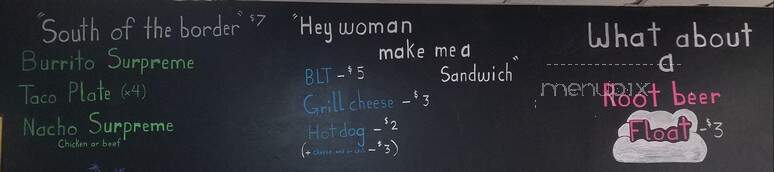 "South of the border" $7
Burrito Surpreme
Taco Plate (x4)
Nacho Surpreme
Chicken or beef
"Hey woman
make me a
Sandwich"
BLT - $5
Grill cheese - $3
Hotdog - $2
(+ cheese and or chili - $3)
What about
a
Root beer
Float - $3
menupix